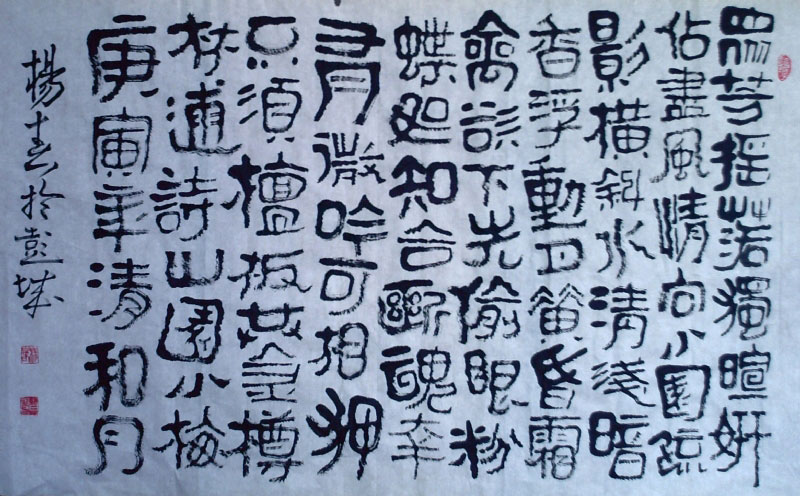 眾芳搖落獨暄妍
佔盡風情向小園疏
影橫斜水清淺暗
香浮動月黃昏霜
禽欲下先偷眼粉
蝶如知合斷魂幸
有微吟可相狎
不須檀板共金樽
林逋詩山園小梅
庚寅年清和月
楊於彭城